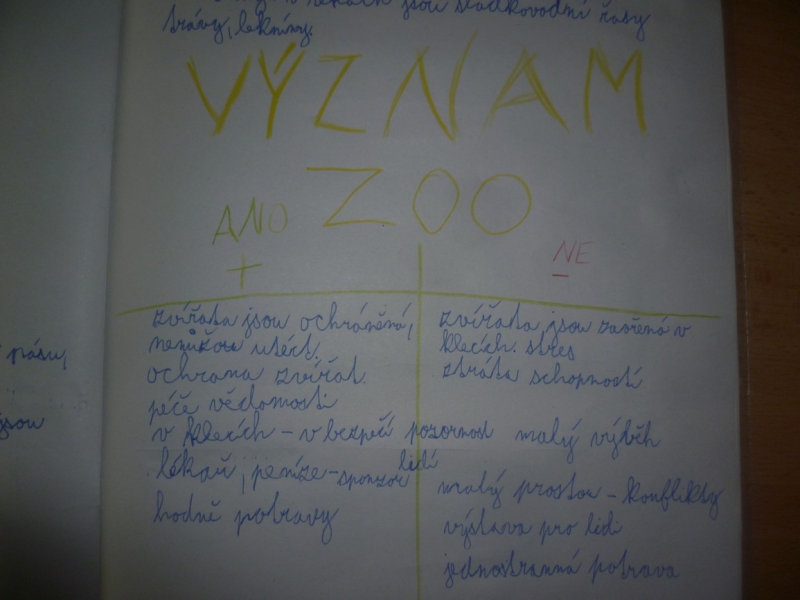 v řekách jsou sladkovodní řasy
trávy, lekníny.
VÝZNAM
ZOO
ANO
+
NE
–
zvířata jsou ochráněná,
nemůžou utéct.
ochrana zvířat.
péče vědomosti
v klecích – v bezpečí pozornost
lidí
lékař, peníze – sponzor
hodně potravy
zvířata jsou zavřená v
klecích. stres
ztráta schopností
malý výběh
malý prostor – konflikty
výstava pro lidi
jednostranná potrava
pásu,
jsou